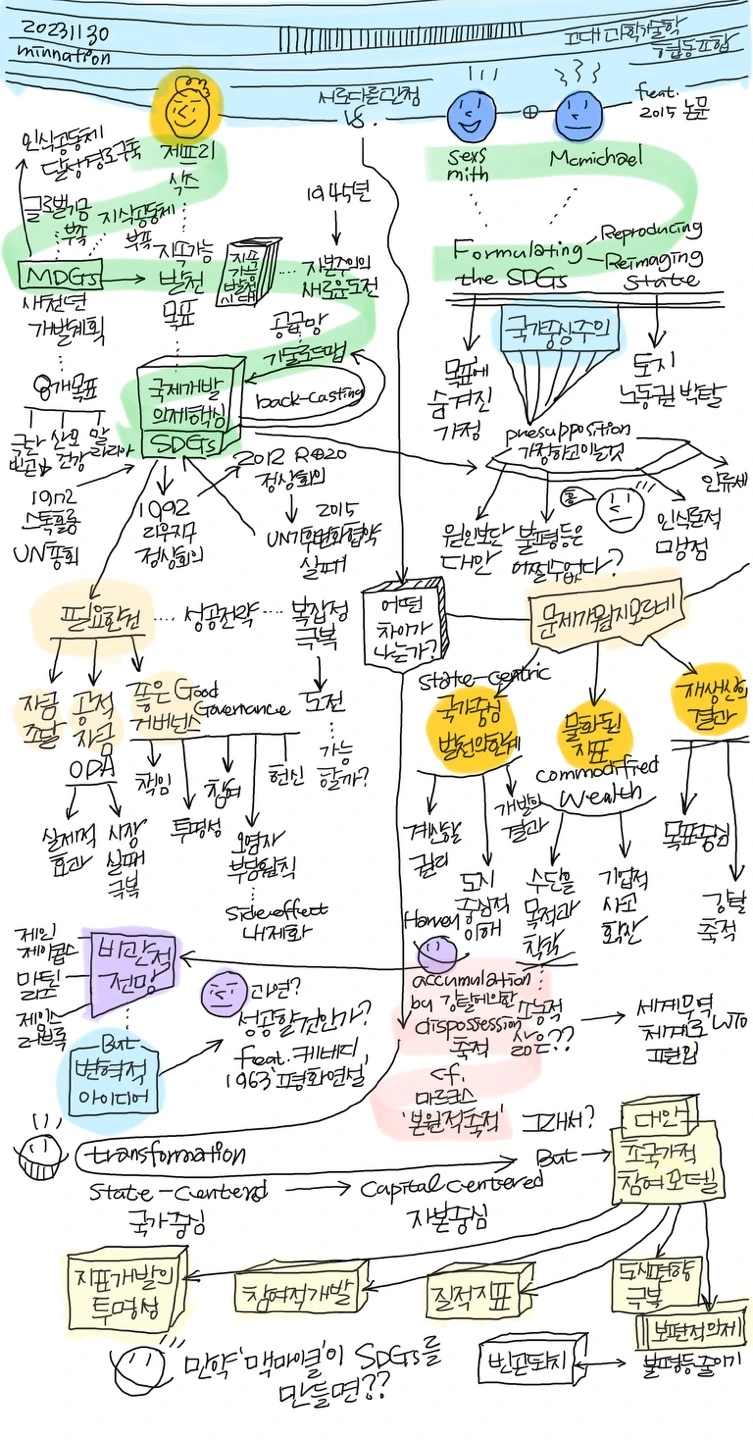 20231130
minnation
고대 과학기술학
협동포함
서로다른관점
VS.
feat.
2015 논문
제프리
삭스
sexs
mith
Mcmichael
인식공동체
달성경로구축
글로벌기금
부족
지식공동체
부족
MDGs
새천년
개발계획
지속가능
발전
목표
지속
가능
발전
시대
1945년
자본주의의
새로운도전
공급망
기술로드맵
back-casting
Formulating
the SDGs
Reproducing
Reimaging
state
국가중심주의
목표에
숨겨진
가정
토지
노동권 박탈
8개목표
극단
빈곤
산모
건강
말
라리아
국제개발
의제핵심
SDGs
presupposition
가정하고있는것
인류세
원인보단
대안
불평등은
어쩔수없다?
흥
인식론적
맹점
1972
스톡홀름
UN총회
1992
리우지구
정상회의
2012 R⊕20
정상회의
2015
UN기후변화협약
실패
필요한건
성공전략
복잡성
극복
어떤
차이가
나는가?
문제가뭘지모르네
자금
조달
공적
자금
좋은 Good
거버넌스 Governance
도전
가능
할까?
ODA
실제적
효과
시장
실패
극복
책임
투명성
참여
오염자
부담원칙
헌신
side effect
내제화
state-centric
국가중심
발전의한계
물화된
지표
commodified
wealth
재생산의
결과
계산할
권리
도시
중심적
이해
개발의
결과
수단을
목적과
착각
기업적
사고
확산
목표중심
강탈
축적
제인
제이콥스
마틴
리즈
제임스
러브록
비관적
전망
But
변혁적
아이디어
과연?
성공할것인가?
feat. 케네디
1963 '평화연설'
Harvey
accumulation
by 강탈에의한
dispossession
축적
cf.
마르크스
'본원적축적'
소농적
삶은??
세계무역
체계로 WTO
편입
transformation
State-Centered
국가중심
Capital centered
자본중심
그래서?
But
대안
초국가적
참여모델
지표개발의
투명성
참여적개발
질적지표
도시편향
극복
보편적의제
만약 '맥마이클'이 SDGs를
만들면??
빈곤퇴치
불평등줄이기